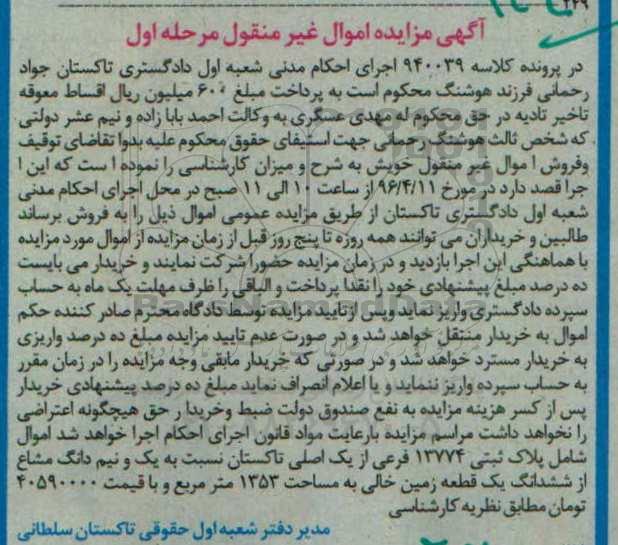 ۲۴۹
آگهی مزایده اموال غیر منقول مرحله اول
در پرونده کلاسه ۹۴۰۰۳۹ اجرای احکام مدنی شعبه اول دادگستری تاکستان جواد
رحمانی فرزند هوشنگ محکوم است به پرداخت مبلغ ۶۰۰ میلیون ریال اقساط معوقه
تاخیر تادیه در حق محکوم له مهدی عسگری به وکالت احمد بابا زاده و نیم عشر دولتی
که شخص ثالث هوشنگ رحمانی جهت استیفای حقوق محکوم علیه بدوا تقاضای توقیف
وفروش ا موال غیر منقول خویش به شرح و میزان کارشناسی را نموده ا ست که این ا
جرا قصد دارد در مورخ ۹۶/۴/۱۱ از ساعت ۱۰ الی ۱۱ صبح در محل اجرای احکام مدنی
شعبه اول دادگستری تاکستان از طریق مزایده عمومی اموال ذیل را به فروش برساند
طالبین و خریداران می توانند همه روزه تا پنج روز قبل از زمان مزایده از اموال مورد مزایده
با هماهنگی این اجرا بازدید و در زمان مزایده حضورا شرکت نمایند و خریدار می بایست
ده درصد مبلغ پیشنهادی خود را نقدا پرداخت و الباقی را ظرف مهلت یک ماه به حساب
سپرده دادگستری واریز نماید وپس ازتایید مزایده توسط دادگاه محترم صادر کننده حکم
اموال به خریدار منتقل خواهد شد و در صورت عدم تایید مزایده مبلغ ده درصد واریزی
به خریدار مسترد خواهد شد و در صورتی که خریدار مابقی وجه مزایده را در زمان مقرر
به حساب سپرده واریز ننماید و یا اعلام انصراف نماید مبلغ ده درصد پیشنهادی خریدار
پس از کسر هزینه مزایده به نفع صندوق دولت ضبط وخریدا ر حق هیچگونه اعتراضی
را نخواهد داشت مراسم مزایده بارعایت مواد قانون اجرای احکام اجرا خواهد شد اموال
شامل پلاک ثبتی ۱۳۷۷۴ فرعی از یک اصلی تاکستان نسبت به یک و نیم دانگ مشاع
از ششدانگ یک قطعه زمین خالی به مساحت ۱۳۵۳ متر مربع و با قیمت ۴۰۵۹۰۰۰۰
تومان مطابق نظریه کارشناسی
مدیر دفتر شعبه اول حقوقی تاکستان سلطانی